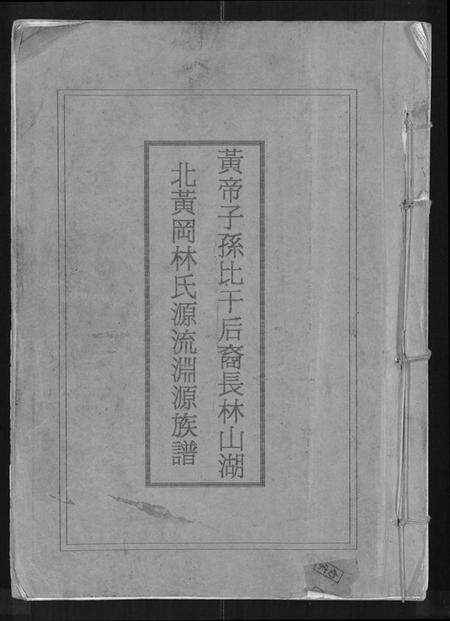 黃帝子孫比干后裔長林山湖
北黃岡林氏源流淵源族譜